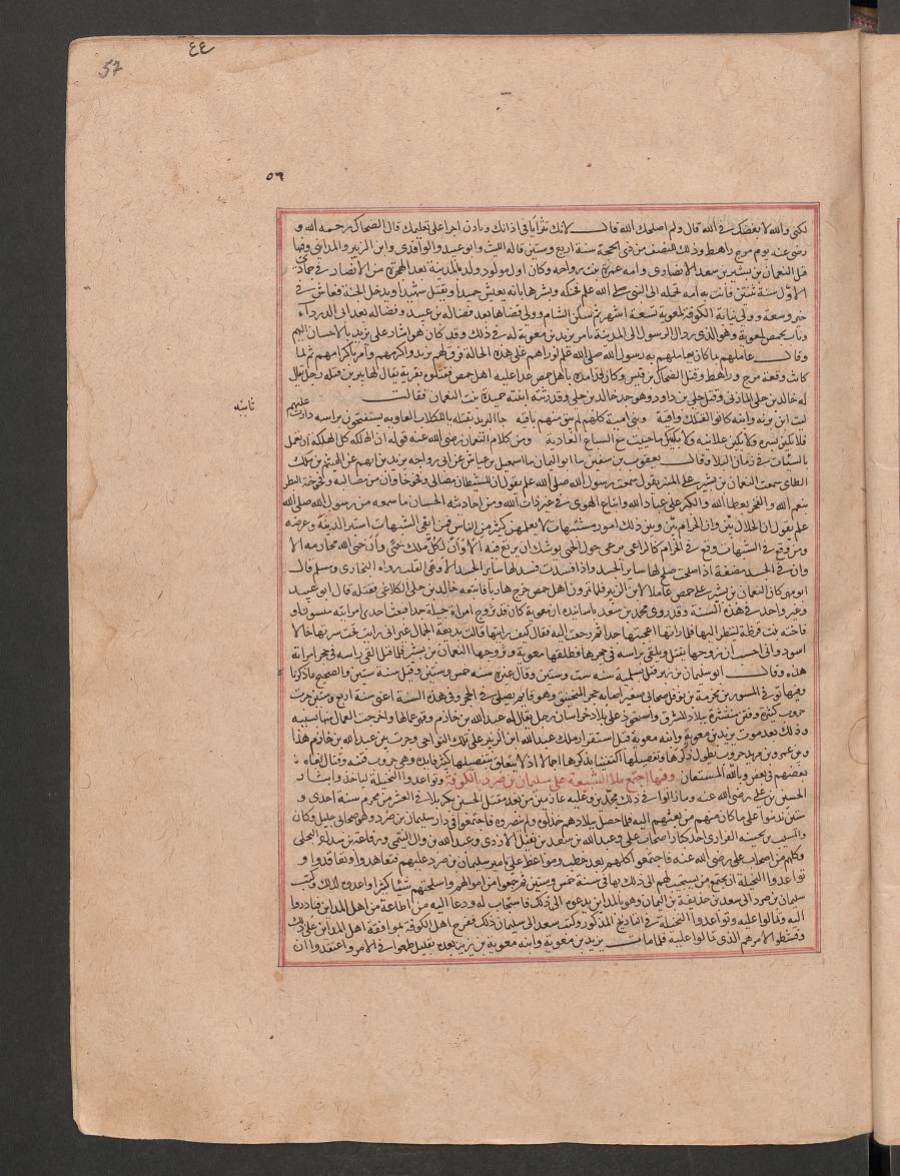 ٤٤
57
٥٦
لكني والله لا بغضك في الله قال ولم اصلحك الله قال لانك تتوانا في اذانك وتاخذ اجرا على تعليمك قال الضحاك رحمه الله و
رضي عنه يوم مرج راهط وذلك للنصف من ذي الحجة سنة اربع وستين قاله الليث وابو عبيد والواقدي وابن الزبير والمدايني وفيها
قتل النعمان بن بشير بن سعد الانصاري وامه عمرة بنت رواحه وكان اول مولود ولد بالمدينة بعد الهجرة من الانصار في جمادى
الاول سنة ثنتين فأتت به امه تحمله الى النبي صلى الله عليه وسلم فحنكه وبشرها بانه يعيش حميدا ويقتل شهيدا ويدخل الجنة فعاش في
خير وسعة وولي نيابة الكوفة لمعوية تسعة اشهر ثم سكن الشام وولي قضاها بعد فضالة بن عبيد وفضالة بعد ابى الدرداء
وناب بحمص لمعوية وهو الذي رد ال الرسول الى المدينة بامر يزيد بن معوية له في ذلك وقد كان هو اشار على يزيد بالاحسان اليهم
وقال عاملهم بما كان يعاملهم به رسول الله صلى الله عليه وسلم لو راهم على هذه الحالة فرق لهم يزيد واكرمهم وأمر باكرامهم ثم لما
كانت وقعة مرج راهط وقتل الضحاك بن قيس وكان قد امده باهل حمص عدا عليه اهل حمص فقتلوه بقرية يقال لها بيرين قتله رجل يقال
له خالد بن خلي المازني وقتل خلي بن داود وهو جد خالد بن خلي وقد رثته ابنته حميدة بنت النعمان فقالت
ثانية
ليت ابن مرنه وابنه كانوا لقتلك واقية وبنى امية كلهم لم تبق منهم باقيه جاء البريد بقتله ياللكلاب العاويه يستفتحون براسه دارت عليهم
فلابكين سره ولابكين علانيه ولابكينك ما حييت مع السباع الغاديه ومن كلام النعمان رضي الله عنه قوله ان الهلكة كل الهلكة ان تعمل
بالسيئات في زمان البلا وقال يعقوب بن سفين ثنا ابو اليمان ثنا اسمعيل بن عياش عن ابي رواحه يزيد بن ايهم عن الهيثم بن ملك
الطائي سمعت النعمان بن بشير على المنبر يقول سمعت رسول الله صلى الله عليه وسلم يقول ان للشيطان مصالي وفخوخا وان من مصاليه وفخوخه البطر
بنعم الله والفخر بعطا الله والكبر على عباد الله واتباع الهوى في غير ذات الله ومن احاديثه الحسان ما سمعه من رسول الله صلى الله
عليه وسلم يقول ان الحلال بين وان الحرام بين وبين ذلك امور مشتبهات لا يعلمهن كثير من الناس فمن اتقى الشبهات استبرا لدينه وعرضه
ومن وقع في الشبهات وقع في الحرام كالراعي يرعى حول الحمى يوشك ان يرتع فيه ألا وان لكل ملك حمى وان حمى الله محارمه الا
وان في الجسد مضغة اذا صلحت صلح لها ساير الجسد واذا فسدت فسد لها ساير الجسد الا وهي القلب رواه البخاري ومسلم قال
ابو مسهر كان النعمان بن بشير على حمص عاملا لابن الزبير فلما تمرون اهل حمص خرج هاربا فاتبعه خالد بن خلي الكلاعي فقتله قال ابو عبيد
وغير واحد في هذه السنة وقد روى محمد بن سعد باسانيده ان معوية كان قد تزوج امراة جميلة جدا فبعث احدى امراتيه ميسون او
فاخته بنت قرظة لينظر اليها فلما راتها اعجبتها جدا ثم رجعت اليه فقال كيف رايتها قالت بديعة الجمال غير اني رايت تحت سرتها خالا
اسود واني احسب ان زوجها يقتل ويلقى براسه في حجرها فطلقها معوية وتزوجها النعمان بن بشير فلما قتل القي راسه في حجر امراته
هذه وقال ابو سليمان بن زبر قتل بسلمية سنه ست وستين وقال غيره سنه خمس وستين وقيل سنة ستين والصحيح ما ذكرنا
وفيها توفي المسور بن مخرمة بن نوفل صحابي صغير اصابه حجر المنجنيق وهو قايم يصلي في الحجر وفي هذه السنة اعني سنة اربع وستين جرت
حروب كثيرة وفتن منتشرة ببلاد المشرق واستحوذ على بلاد خراسان رجل يقال له عبد الله بن خازم وقهر عمالها واخرجت العمال منها بسببه
وذلك بعد موت يزيد بن معوية وابنه معوية قبل استقرار ملك عبد الله ابن الزبير على تلك النواحي وجرت بين عبد الله بن خازم هذا
وبين عمرو بن مرثد حروب يطول ذكرها وتفصيلها اكتفينا بذكرها اجمالا اذ لا يتعلق بتفصيلها كثير فايدة وهي حروب فتنه وقتال بغاه
بعضهم في بعض وبالله المستعان وفيها اجتمع ملا الشيعة على سليمان بن صرد بالكوفة وتواعدوا النخيلة لياخذوا بثار
الحسين بن علي رضي الله عنه وما زالوا في ذلك مجدين وعليه عازمين من بعد مقتل الحسين بكربلا في العشر من محرم سنة احدى و
ستين ندموا على ما كان منهم من بعثهم اليه فلما حصل ببلادهم خذلوه ولم ينصروه فاجتمعوا في دار سليمان بن صرد وهو صحابي جليل وكان
والمسيب بن نجيه الفزاري احد كبار اصحاب علي وعبد الله بن سعد بن نفيل الازدي وعبد الله بن وال التيمي ورفاعه بن شداد البجلي
وكلهم من اصحاب علي رضي الله عنه فاجتمعوا كلهم بعد خطب ومواعظ على تامير سليمان بن صرد عليهم فتعاهدوا وتعاقدوا و
تواعدوا النخيلة ان يجتمع من يستجيب لهم الى ذلك بها في سنة خمس وستين ثم جمعوا من اموالهم واسلحتهم شيئا كثيرا واعدوه لذلك وكتب
سليمان بن صرد الى سعد بن حذيفة بن اليمان وهو بالمداين يدعوه الى ذلك فاستجاب له ودعا اليه من اطاعه من اهل المداين فبادروا
اليه وتمالوا عليه وتواعدوا النخيلة في التاريخ المذكور وكتب سعد الى سليمان بذلك ففرح اهل الكوفة بموافقة اهل المداين على ذلك
وتنشطوا لامرهم الذي تمالوا عليه فلما مات يزيد بن معوية وابنه معوية بن يزيد بعده بقليل طمعوا في الامر واعتقدوا ان